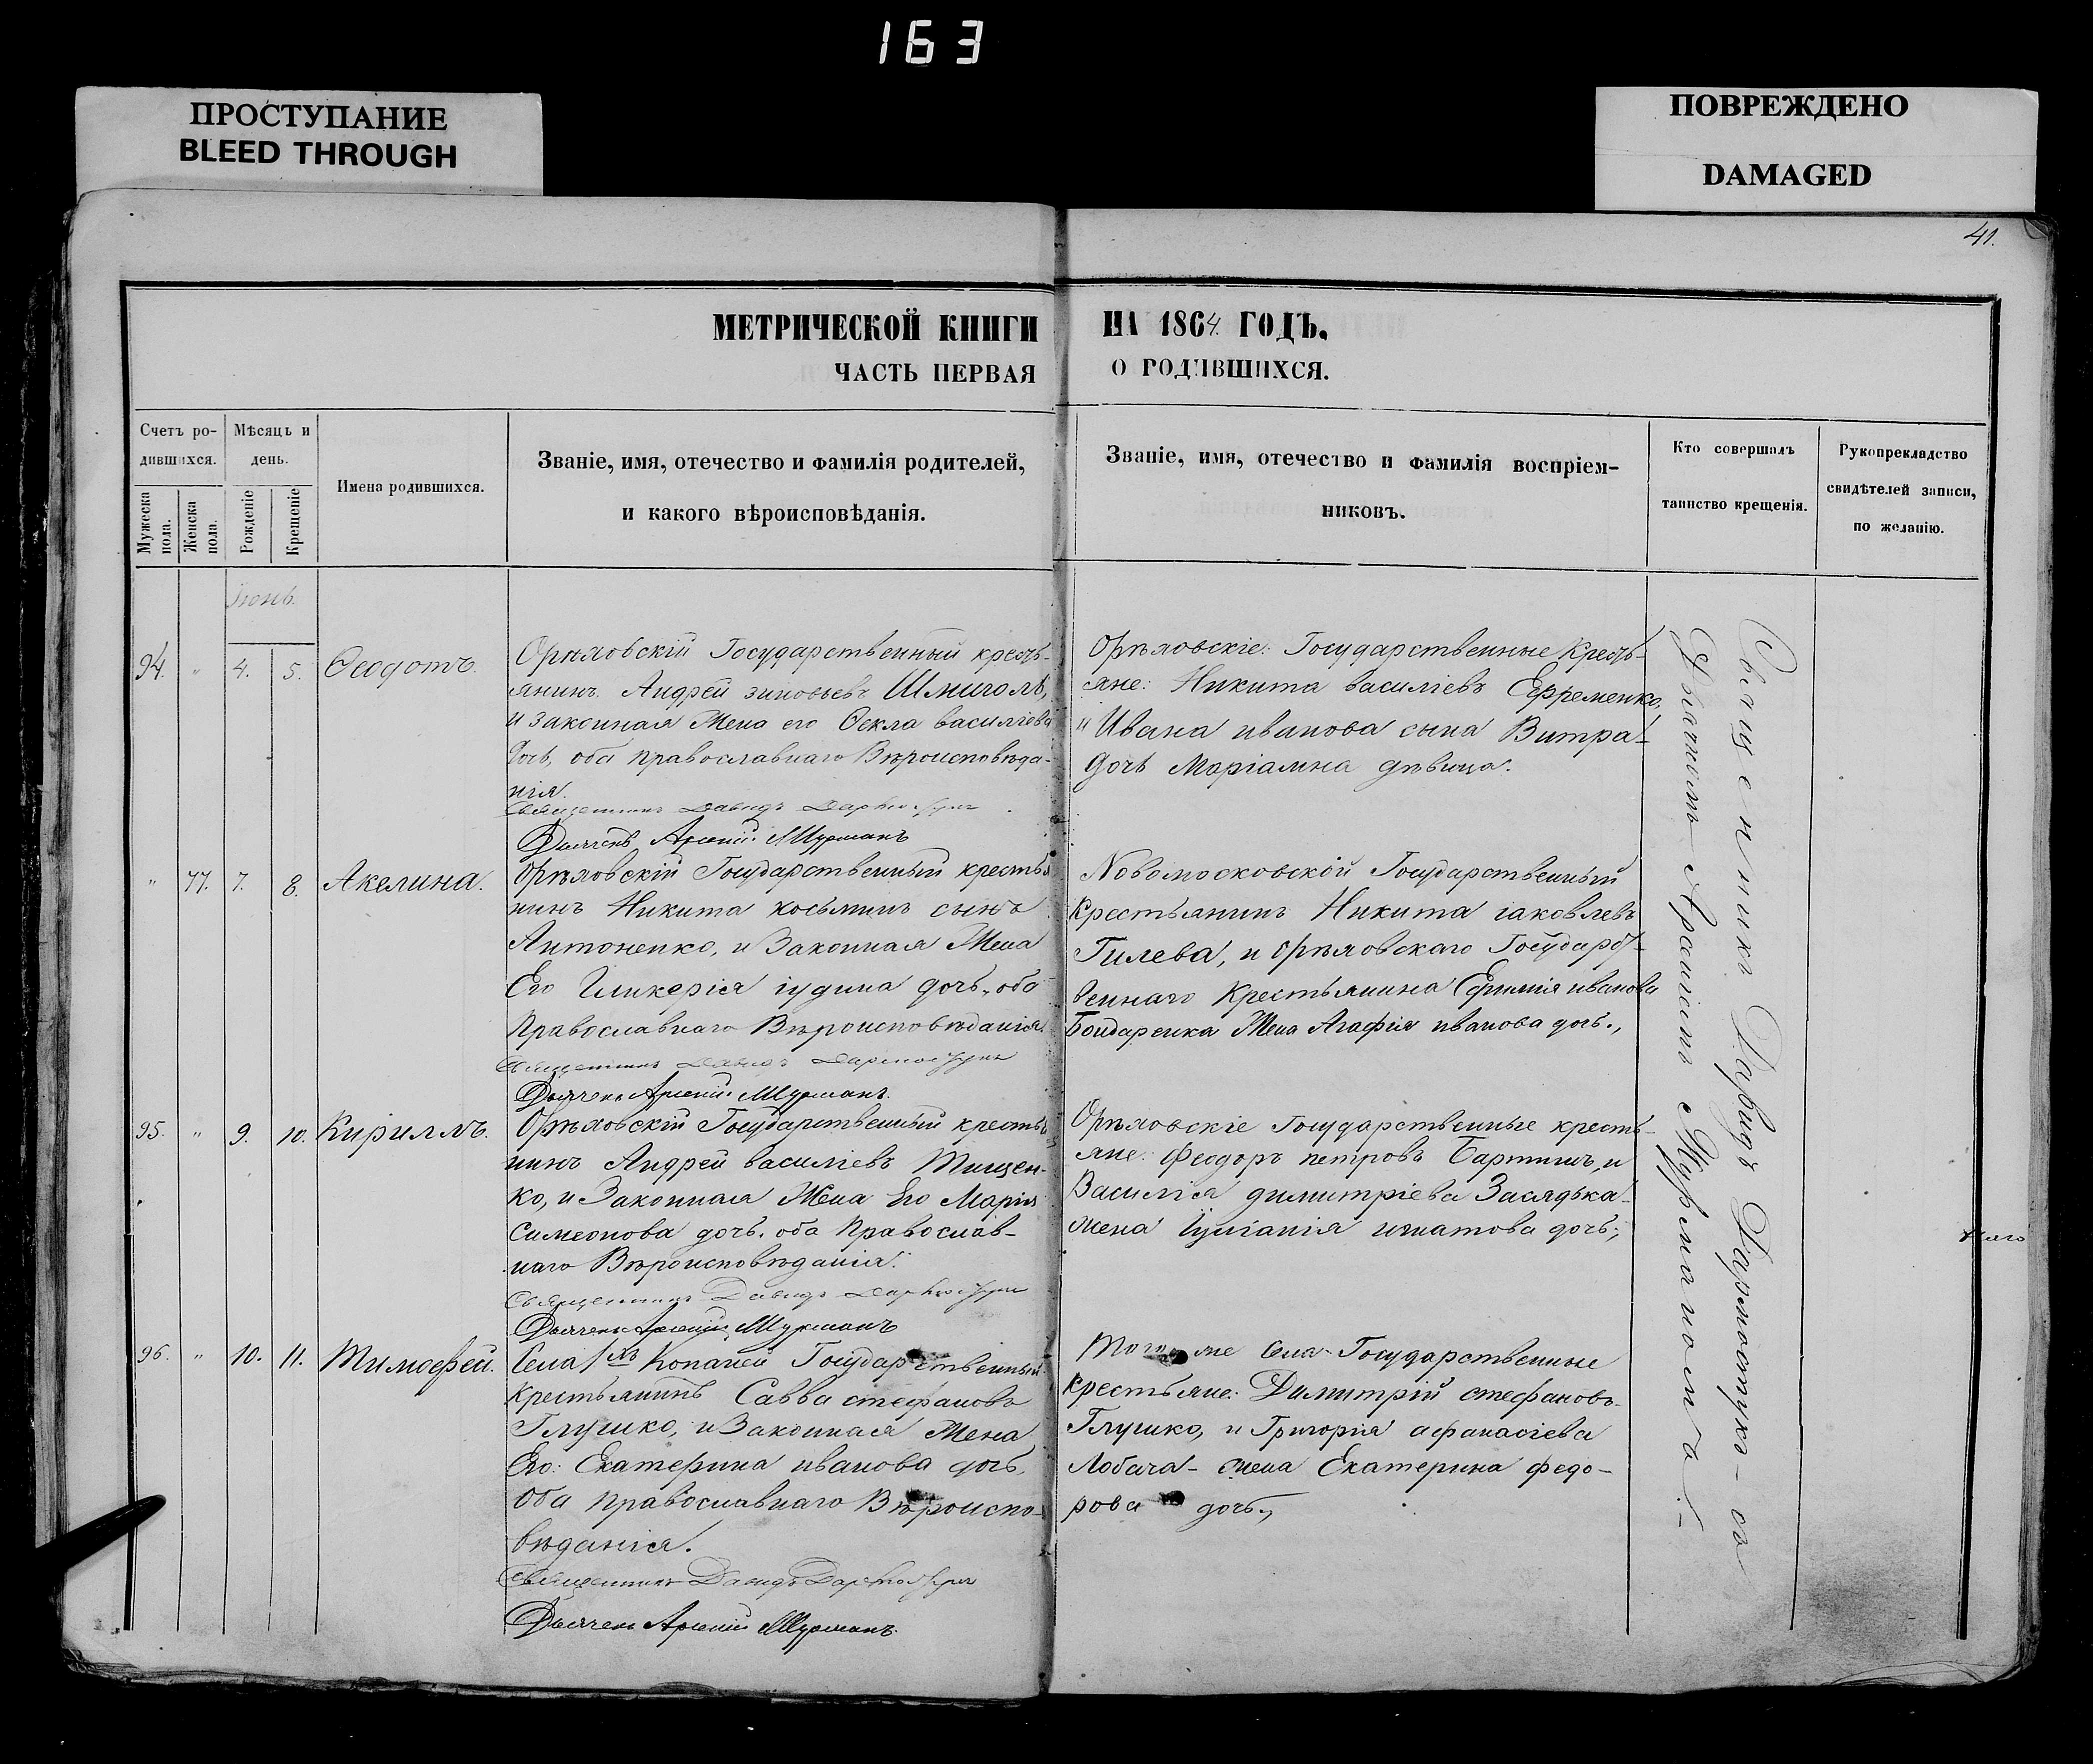 163
ПРОСТУПАНИЕ
BLEED THROUGH
ПОВРЕЖДЕНО
DAMAGED
41.
МЕТРИЧЕСКОЙ КНИГИ НА 1864. ГОДЪ.
ЧАСТЬ ПЕРВАЯ О РОДИВШИХСЯ.
Счетъ ро-
дившихся.
Мужеска пола.
Женска пола.
Мѣсяцъ и
день.
Рожденіе
Крещеніе
Имена родившихся.
Званіе, имя, отечество и фамилія родителей,
и какого вѣроисповѣданія.
Званіе, имя, отечество и фамилія воспріем-
никовъ.
Кто совершалъ
таинство крещенія.
Рукоприкладство
свидѣтелей записи,
по желанію.
Іюнь.
94. " 4. 5. Ѳеодотъ.
Орѣховскій Государственный кресть-
янинъ Андрей зиновьевъ Шмиголь,
и законная Жена его Ѳекла василіева
дочь, оба православнаго Вѣроисповѣда-
нія.
Священникъ Давидъ
Дьячекъ Арсеній Мурманъ
Орѣховскіе: Государственные Кресть-
яне: Никита василіевъ Ефременко,
и Ивана иванова сына Витра-
дочь Маріамна дѣвица.
" 77. 7. 8. Акелина.
Орѣховскій Государственный крестья
нинъ Никита косьминъ сынъ
Антоненко, и Законная Жена
Его Гликерія іудина дочь, оба
православнаго Вѣроисповѣданія
Священникъ Давидъ
Дьячекъ Арсеній Мурманъ.
Новомосковскій Государственный
Крестьянинъ Никита іаковлевъ
Гилева, и орѣховскаго Государст-
веннаго Крестьянина Ефимія иванова
Бондаренка Жена Агафія иванова дочь.,
95. " 9. 10. Кириллъ.
Орѣховскій Государственный крестья
нинъ Андрей василіевъ Тищен-
ко, и Законная Жена Его Марія
Симеонова дочь. оба Православ-
наго Вѣроисповѣданія.
Священникъ Давидъ
Дьячекъ Арсеній Мурманъ
Орѣховскіе Государственные кресть-
яне: Феодоръ петровъ Бартишъ, и
Василія димитріева Засядька-
жена Іуліанія игнатова дочь;
96. " 10. 11. Тимоѳей.
Села Копаней Государственный
крестьянинъ Савва стефановъ
Глушко, и Законная Жена
Его: Екатерина иванова дочь,
Оба православнаго Вѣроиспо-
вѣданія.
Священникъ Давидъ
Дьячекъ Арсеній Мурманъ.
Того же Села Государственные
крестьяне: Димитрій стефановъ
Глушко, и Григорія афанасіева
Лобача- жена Екатерина федо-
рова дочь.,
Священникъ Давидъ - съ
Дьячкомъ Арсеніемъ Мурманомъ.